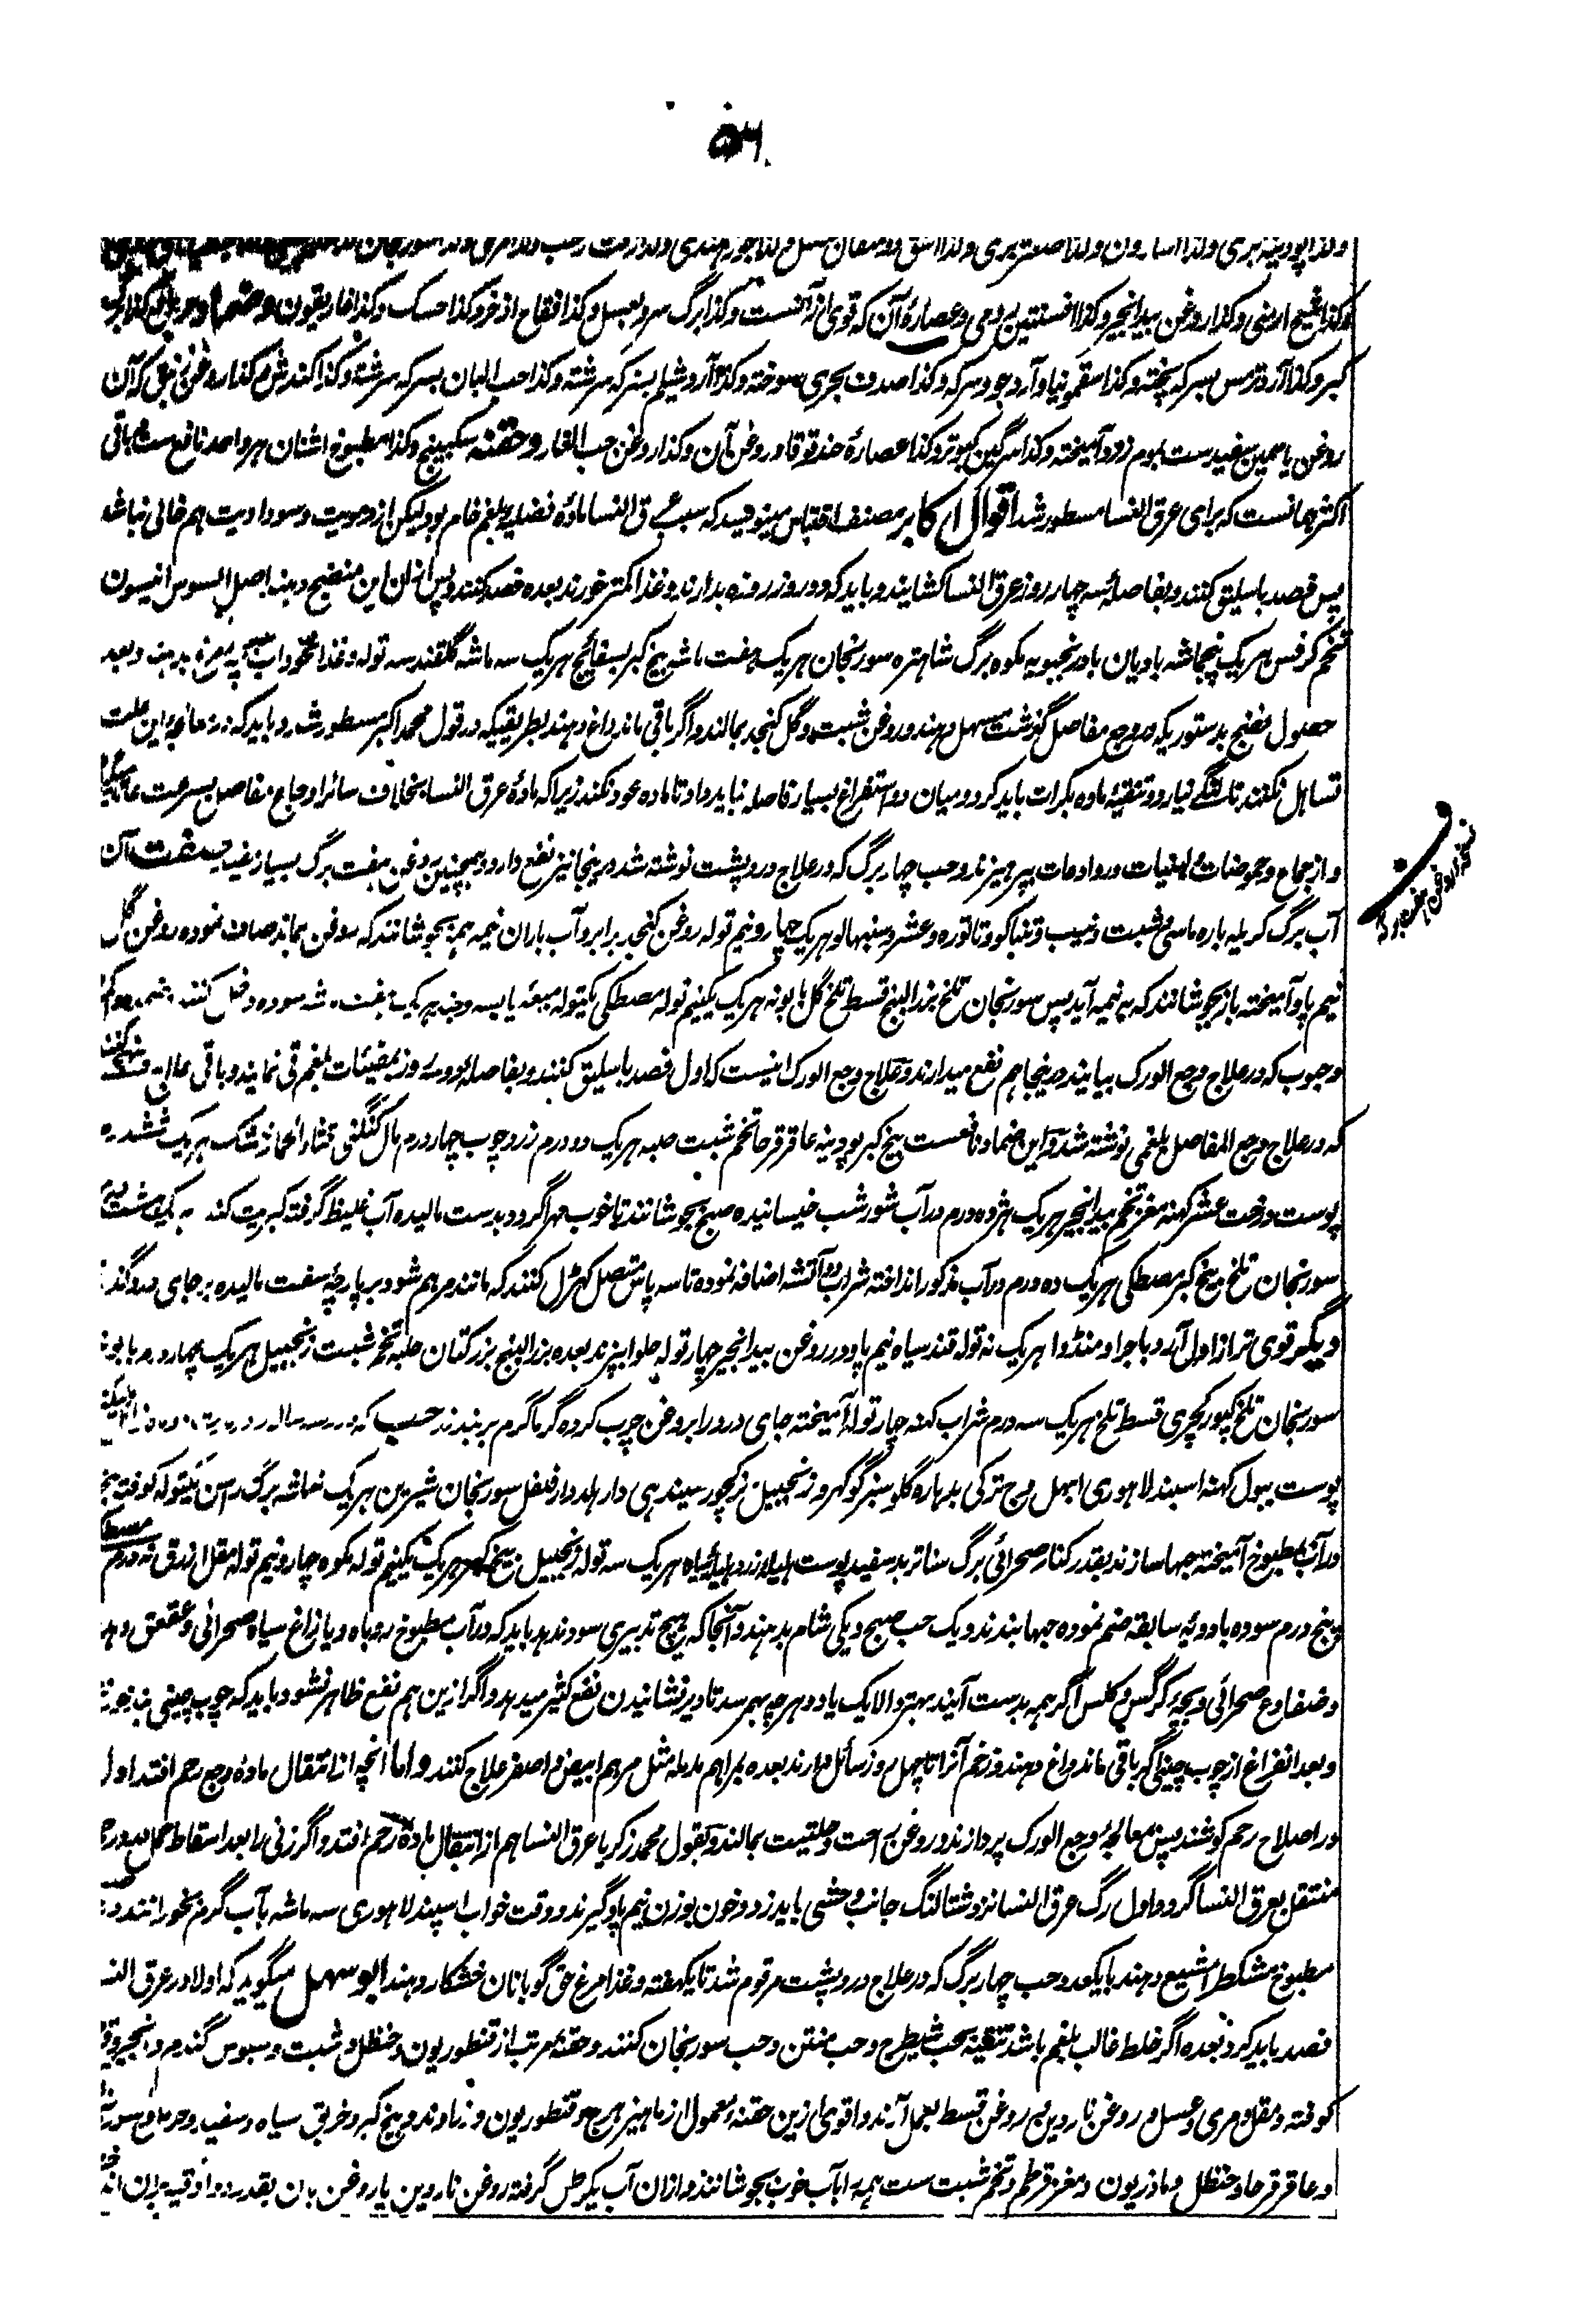 ۵۶
وکذا پودینه بری وکذا اسارون وکذا صعتر بری وکذا اشق
وکذا شیح ارمنی وکذا روغن بیدانجیر وکذا افسنتین رومی وعصارهٔ آن که قوی از آنست وکذا برگ سرو بعسل وکذا فقاح اذخر وکذا حسک وکذا غاریقون وضماد
کبر وکذا آرد ترمس بسرکه پخته وکذا سقمونیا وآرد جو وسرکه وکذا صدف بحری سوخته وکذا آرد شیلم بسرکه سرشته وکذا حب البان بسرکه سرشته وکذا کندش وکذا روغن زنبق که آن
روغن یاسمین سفیدست بموم زرد آمیخته وکذا سرگین کبوتر وکذا عصارهٔ حندقوقا وروغن آن وکذا روغن حب الغار وحقنه سکبینج وکذا مطبوخ اشنان هر واحد نافع ست باقی
اکثر همانست که برای عرق النسا مسطور شد اقوال اکابر مصنف اقتباس مینویسد که سبب عرق النسا مادهٔ فضلیه بلغم خام بود لیکن از دمویت وسوداویت هم خالی نباشد
پس فصد باسلیق کنند وبفاصلهٔ سه چهار روز عرق النسا کشایند وباید که دو روز روزه بدارند وغذا کمتر خورند بعده فصد کنند وپس ازان این منضج دهند اصل السوس انیسون
تخم کرفس هر یک پنجماشه بادیان بادرنجبویه مکوه برگ شاهتره سورنجان هر یک هفت ماشه بیخ کبر بسفائج هر یک سه ماشه گلقند سه توله وغذا نخوداب بدهند وبعد
حصول نضج بدستوریکه در وجع مفاصل گذشت مسهل دهند وروغن شبت وگل کنجد بمالند واگر باقی ماند داغ دهند بطریقیکه در قول محمد اکبر مسطور شد وباید که در معالجهٔ این علت
تساهل نکنند تا لنگی نیارد وتنقیهٔ ماده بکرات باید کرد ومیان دو استفراغ بسیار فاصله نباید داد تا ماده عود نکند زیرا که مادهٔ عرق النسا بخلاف سائر اوجاع مفاصل بسرعت
واز جماع وحموضات ولبنیات ورواد مات پرهیزند وحب چهار برگ که در علاج درد پشت نوشته شد درینجا نیز نفع دارد وهمچنین روغن هفت برگ بسیار مفید صفت آن
آب برگ کریله باره ماسی وشبت وسیب وتنباکو وتاتوره وعشر وسنبهالو هر یک چهار ونیم توله روغن کنجد برابر وآب باران نیمه همه بجوشانند که روغن بماند صاف نموده روغن گل
نیم پاو آمیخته باز بجوشانند که به نیمه آید پس سورنجان تلخ بزر البنج قسط تلخ گل بابونه هر یک یکنیم توله مصطکی یکتوله میعه یابسه هر یک هفت ماشه سوده داخل کنند
وحبوب که در علاج وجع الورک بیایند درینجا هم نفع میدارند وعلاج وجع الورک اینست که اول فصد باسلیق کنند وبفاصلهٔ دو سه روز بمقیئات بلغم قی نمایند وباقی علاج
که در علاج وجع المفاصل بلغمی نوشته شد واین ضماد نافعست بیخ کبر پودینه عاقرقرحا تخم شبت حلبه هر یک دو درم زرد چوب چهار درم مال کنگنی قثاء الحمار زشک هر یک شش درم
پوست درخت عشر کهنه مغز تخم بیدانجیر هر یک هژده درم در آب شور شب خیسانیده صبح بجوشانند تا خوب مهرا گردد بدست مالیده آب غلیظ گرفته کبریت کند
سورنجان تلخ بیخ کبر مصطکی هر یک ده درم در آب مذکور انداخته شراب دو آتشه اضافه نموده تا سه پاس متصل کهرل کنند که مانند مرهم شود بر پارچهٔ سفت مالیده بر جای درد
دیگر قوی تر از اول آرد باجرا ومنڈوا هر یک نه توله قند سیاه نیم پاو در روغن بیدانجیر چهار توله حلوا پزند بعده بزر البنج بزر کتان حلبه تخم شبت زنجبیل هر یک چهار درم بابونه
سورنجان تلخ کپور کچری قسط تلخ هر یک سه درم شراب کهنه چار توله آمیخته جای درد را بروغن چرب کرده گرماگرم بربندند حب
پوست ببول کهنه اسپند لاهوری ابهل وج ترکی بلهاره گلو سبز گوکهرو زنجبیل نرکچور سیندهی دار هلد دارفلفل سورنجان شیرین هر یک نماشه برگ راسن یکتوله کوفته
در آب مطبوخ آمیخته حبها سازند بقدر کنار صحرائی برگ سنا تربد سفید پوست هلیله زرد هلیلهٔ سیاه هر یک سه توله زنجبیل بیخ کبر هر یک یکنیم توله مکوه چار ونیم توله مقل ازرق نه درم
پنج درم سوده بادویهٔ سابقه ضم نموده حبها بندند ویک حب صبح ویکی شام بدهند وآنجا که هیچ تدبیری سود ندهد باید که در آب مطبوخ روباه ویا زاغ سیاه صحرائی وعقعق
وضفادع صحرائی وبچهٔ کرگس وکلس اگر همه بدست آیند بهتر والا یک یا دو هرچه بهم رسد تا دیر نشانیدن نفع کثیر میدهد واگر ازین هم نفع ظاهر نشود باید که چوب چینی
وبعد انفراغ از چوب چینی اگر باقی ماند داغ دهند وزخم آنرا تا چهل روز سائل دارند بعده بمراهم مدمله مثل مرهم ابیض واصفر علاج کنند واما آنچه از انتقال مادهٔ وجع رحم افتد اول
در اصلاح رحم کوشند پس بمعالجهٔ وجع الورک پردازند وروغن وحلتیت بمالند وبقول محمد زکریا عرق النسا هم از انتقال مادهٔ رحم افتد واگر زنی را بعد اسقاط حمل
منتقل بعرق النسا گردد اول رگ عرق النسا نزد شتالنگ جانب وحشی باید زد وخون بوزن نیم پاو گیرند ووقت خواب اسپند لاهوری سه ماشه بآب گرم بخورانند
مطبوخ مشکطرامشیع دهند بایکعدد حب چهار برگ که در علاج درد پشت مرقوم شد تا یکهفته وغذا مرغ حق گو با نان خشکار دهند ابو سهل میگوید که اولا در عرق النسا
فصد باید کرد وبعده اگر خلط غالب بلغم باشد تنقیه بحب شیطرج وحب منتن وحب سورنجان کنند وحقنهٔ مرتب از قنطوریون وحنظل وشبت وسبوس گندم وانجیر
کوفته ومقل ومری وعسل وروغن ناردین وروغن قسط بعمل آرند واقوی ازین حقنهٔ معمول از ماهیزهرج وقنطوریون وزراوند وبیخ کبر وخربق سیاه وسفید وحرمل
وعاقرقرحا وحنظل وماذریون ومغز قرطم وتخم شبت ست همه را بآب خوب بجوشانند وازان آب یکرطل گرفته روغن ناردین یا روغن بان بقدر دو اوقیه